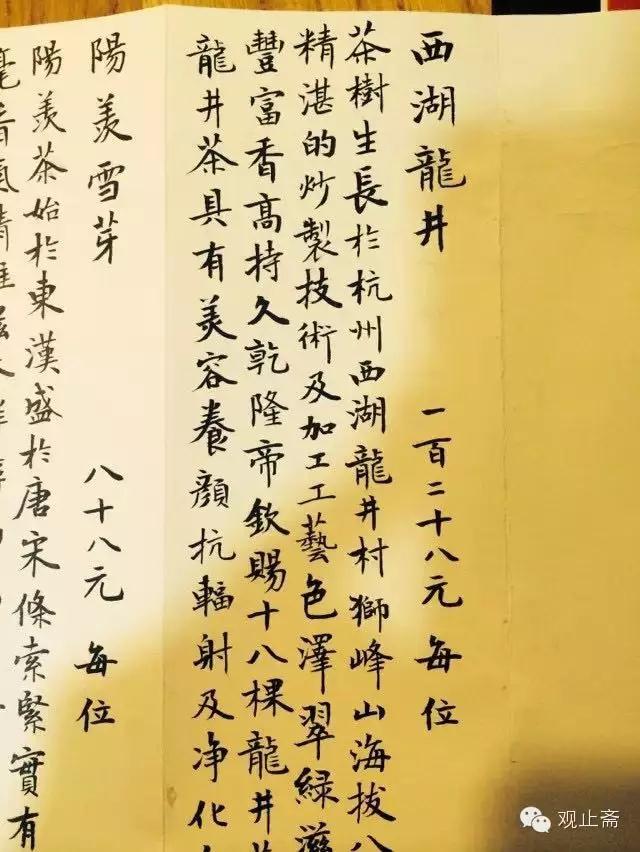 西湖龍井 一百二十八元 每位
茶樹生長於杭州西湖龍井村獅峰山海拔八
精湛的炒製技術及加工工藝色澤翠緑滋
豐富香高持久乾隆帝欽賜十八棵龍井茶
龍井茶具有美容養顔抗輻射及净化
陽羨雪芽 八十八元 每位
陽羨茶始於東漢盛於唐宋條索緊實有
观止斋